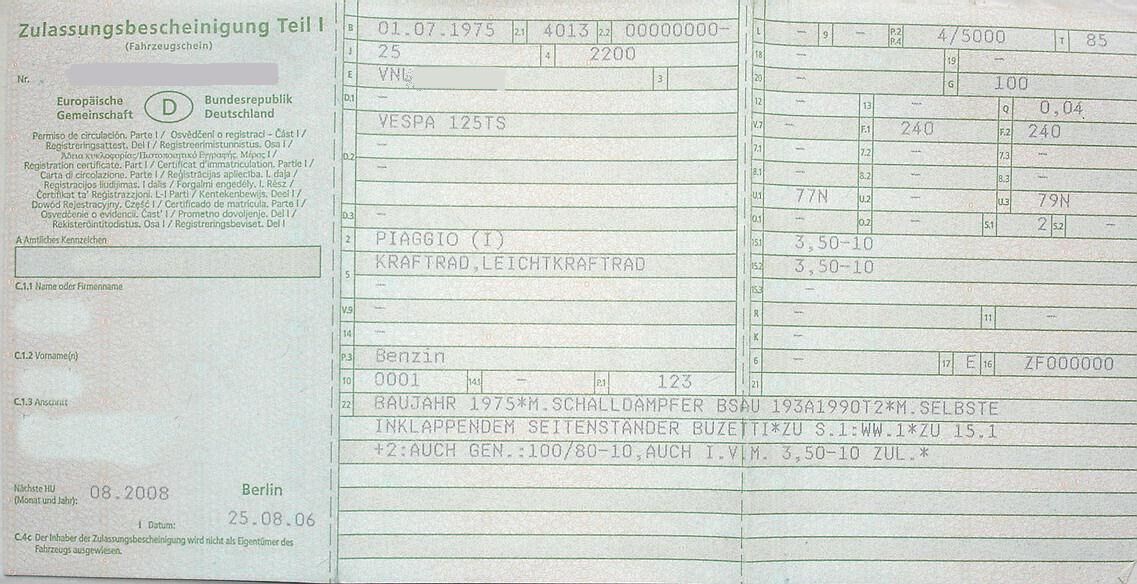 Zulassungsbescheinigung Teil I
(Fahrzeugschein)
Nr.
Europäische Gemeinschaft
D
Bundesrepublik Deutschland
Permiso de circulación. Parte I / Osvědčení o registraci – Část I /
Registreringsattest. Del I / Registreerimistunnistus. Osa I /
Άδεια κυκλοφορίας/Πιστοποιητικό Εγγραφής. Μέρος I /
Registration certificate. Part I / Certificat d'immatriculation. Partie I /
Carta di circolazione. Parte I / Reģistrācijas apliecība. I. daļa /
Registracijos liudijimas. I dalis / Forgalmi engedély. I. Rész /
Ċertifikat ta' Reġistrazzjoni. L-I Parti / Kentekenbewijs. Deel I /
Dowód Rejestracyjny. Część I / Certificado de matrícula. Parte I /
Osvedčenie o evidencii. Časť I / Prometno dovoljenje. Del I /
Rekisteröintitodistus. Osa I / Registreringsbeviset. Del I
A Amtliches Kennzeichen
C.1.1 Name oder Firmenname
C.1.2 Vorname(n)
C.1.3 Anschrift
Nächste HU
(Monat und Jahr): 08.2008
Berlin
I Datum: 25.08.06
C.4c Der Inhaber der Zulassungsbescheinigung wird nicht als Eigentümer des
Fahrzeugs ausgewiesen.
B 01.07.1975 2.1 4013 2.2 00000000–
J 25 4 2200
E VNL 3
D.1 –
VESPA 125TS
D.2 –
–
D.3 –
2 PIAGGIO (I)
5 KRAFTRAD,LEICHTKRAFTRAD
–
V.9 –
14 –
P.3 Benzin
10 0001 14.1 – P.1 123
L – 9 – P.2 P.4 4/5000 T 85
18 – 19 –
20 – G 100
12 – 13 – Q 0,04
V.7 – F.1 240 F.2 240
7.1 – 7.2 – 7.3 –
8.1 – 8.2 – 8.3 –
U.1 77N U.2 – U.3 79N
O.1 – O.2 – S.1 2 S.2 –
15.1 3,50–10
15.2 3,50–10
15.3 –
R – 11 –
K –
6 – 17 E 16 ZF000000
21
22 BAUJAHR 1975*M.SCHALLDÄMPFER BSAU 193A1990T2*M.SELBSTE
INKLAPPENDEM SEITENSTÄNDER BUZETTI*ZU S.1:WW.1*ZU 15.1
+2:AUCH GEN.:100/80–10,AUCH I.V.M. 3,50–10 ZUL.*